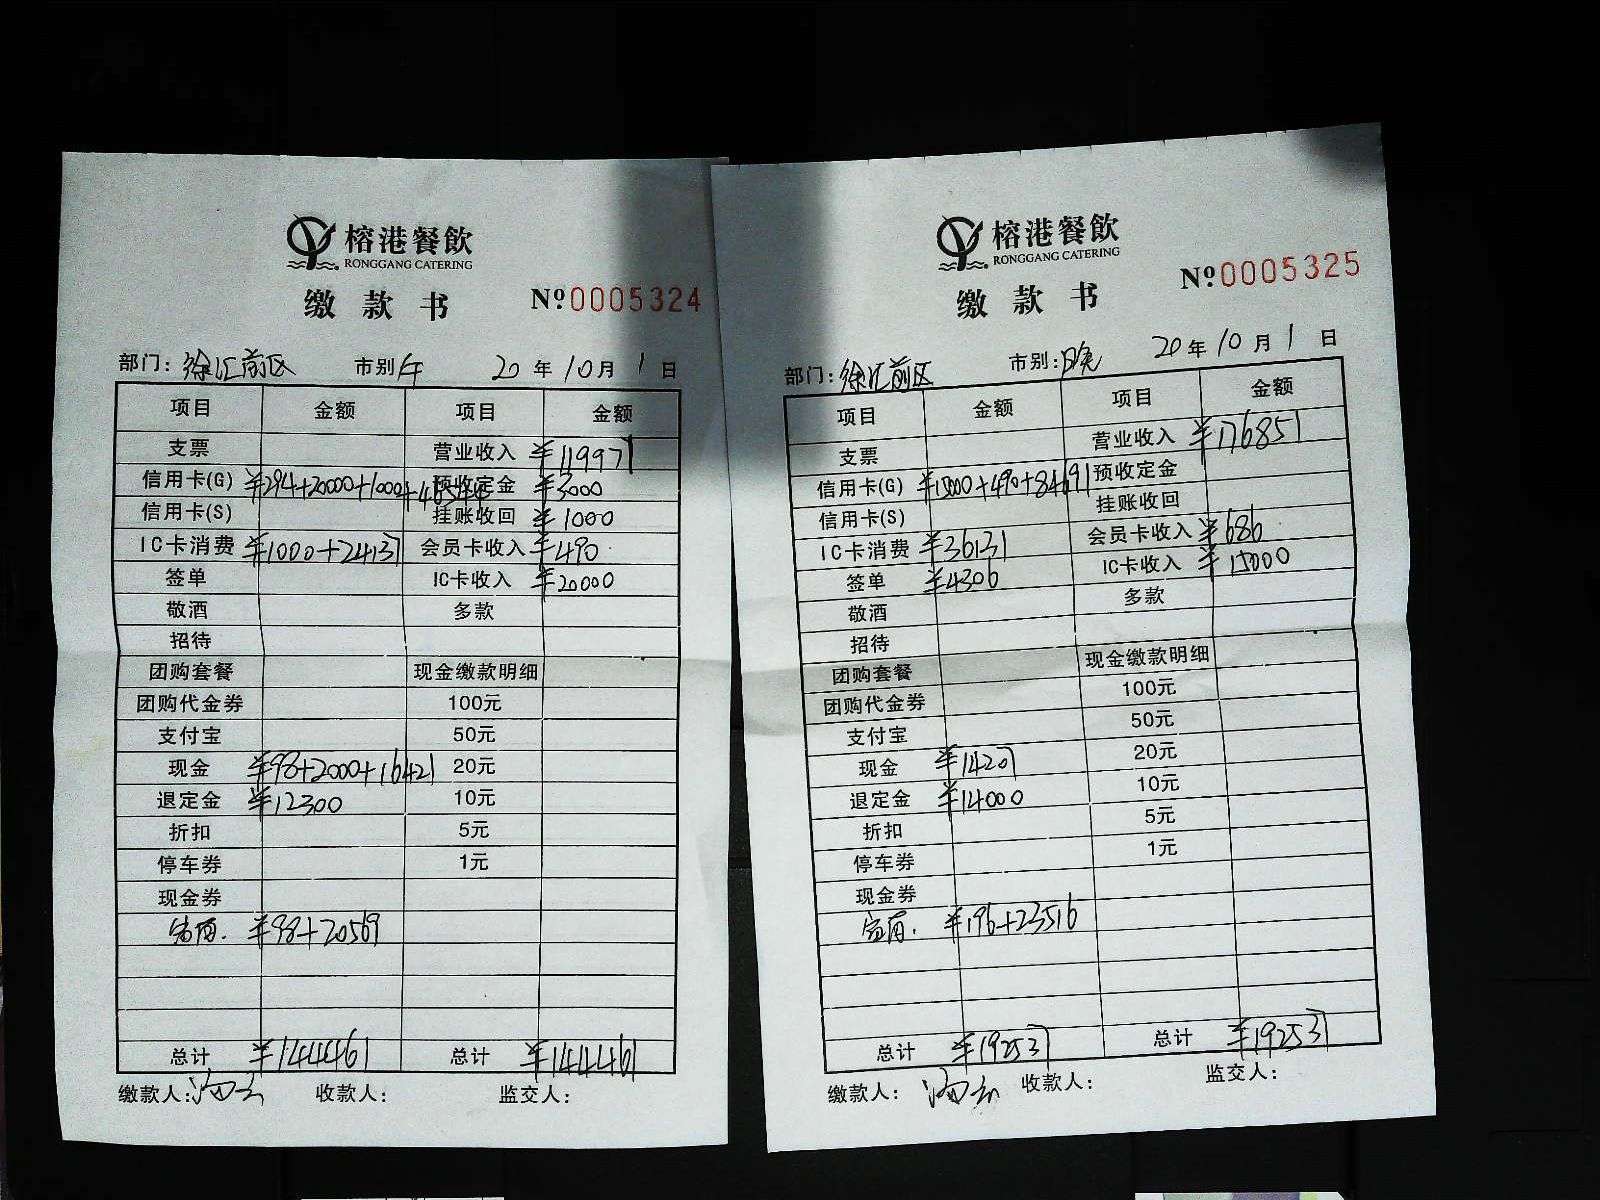 榕港餐飲
RONGGANG CATERING
缴款书 Nº0005324
部门：徐汇前区 市别 午 20年10月1日
项目 金额 项目 金额
支票 营业收入 ¥119971
信用卡(G) ¥294+20000+1000+46544 预收定金 ¥3000
信用卡(S) 挂账收回 ¥1000
IC卡消费 ¥1000+24137 会员卡收入 ¥490
签单 IC卡收入 ¥20000
敬酒 多款
招待
团购套餐 现金缴款明细
团购代金券 100元
支付宝 50元
现金 ¥98+2000+16421 20元
退定金 ¥12300 10元
折扣 5元
停车券 1元
现金券
¥98+20569
总计 ¥144461 总计 ¥144461
缴款人： 收款人： 监交人：
榕港餐飲
RONGGANG CATERING
缴款书 Nº0005325
部门：徐汇前区 市别：晚 20年10月1日
项目 金额 项目 金额
支票 营业收入 ¥176851
信用卡(G) ¥15000+490+84691 预收定金
信用卡(S) 挂账收回
IC卡消费 ¥36131 会员卡收入 ¥686
签单 ¥4306 IC卡收入 ¥15000
敬酒 多款
招待
团购套餐 现金缴款明细
团购代金券 100元
支付宝 50元
现金 ¥14207 20元
退定金 ¥14000 10元
折扣 5元
停车券 1元
现金券
¥196+23516
总计 ¥192537 总计 ¥192537
缴款人： 收款人： 监交人：